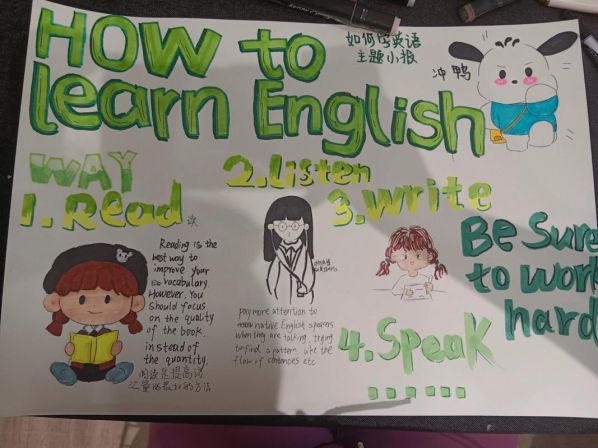 How to
learn English
如何学英语
主题小报
冲鸭
WAY
1. Read
读
Reading is the
best way to
improve your
vocabulary
However, You
should focus
on the quality
of the book,
instead of
the quantity.
阅读是提高词
汇量的最好的方法
2. Listen
pay more attention to
native English speakers
when they are talking, trying
to find a pattern, like the
flow of sentences etc
3. Write
4. Speak
Be Sure
to work
hard